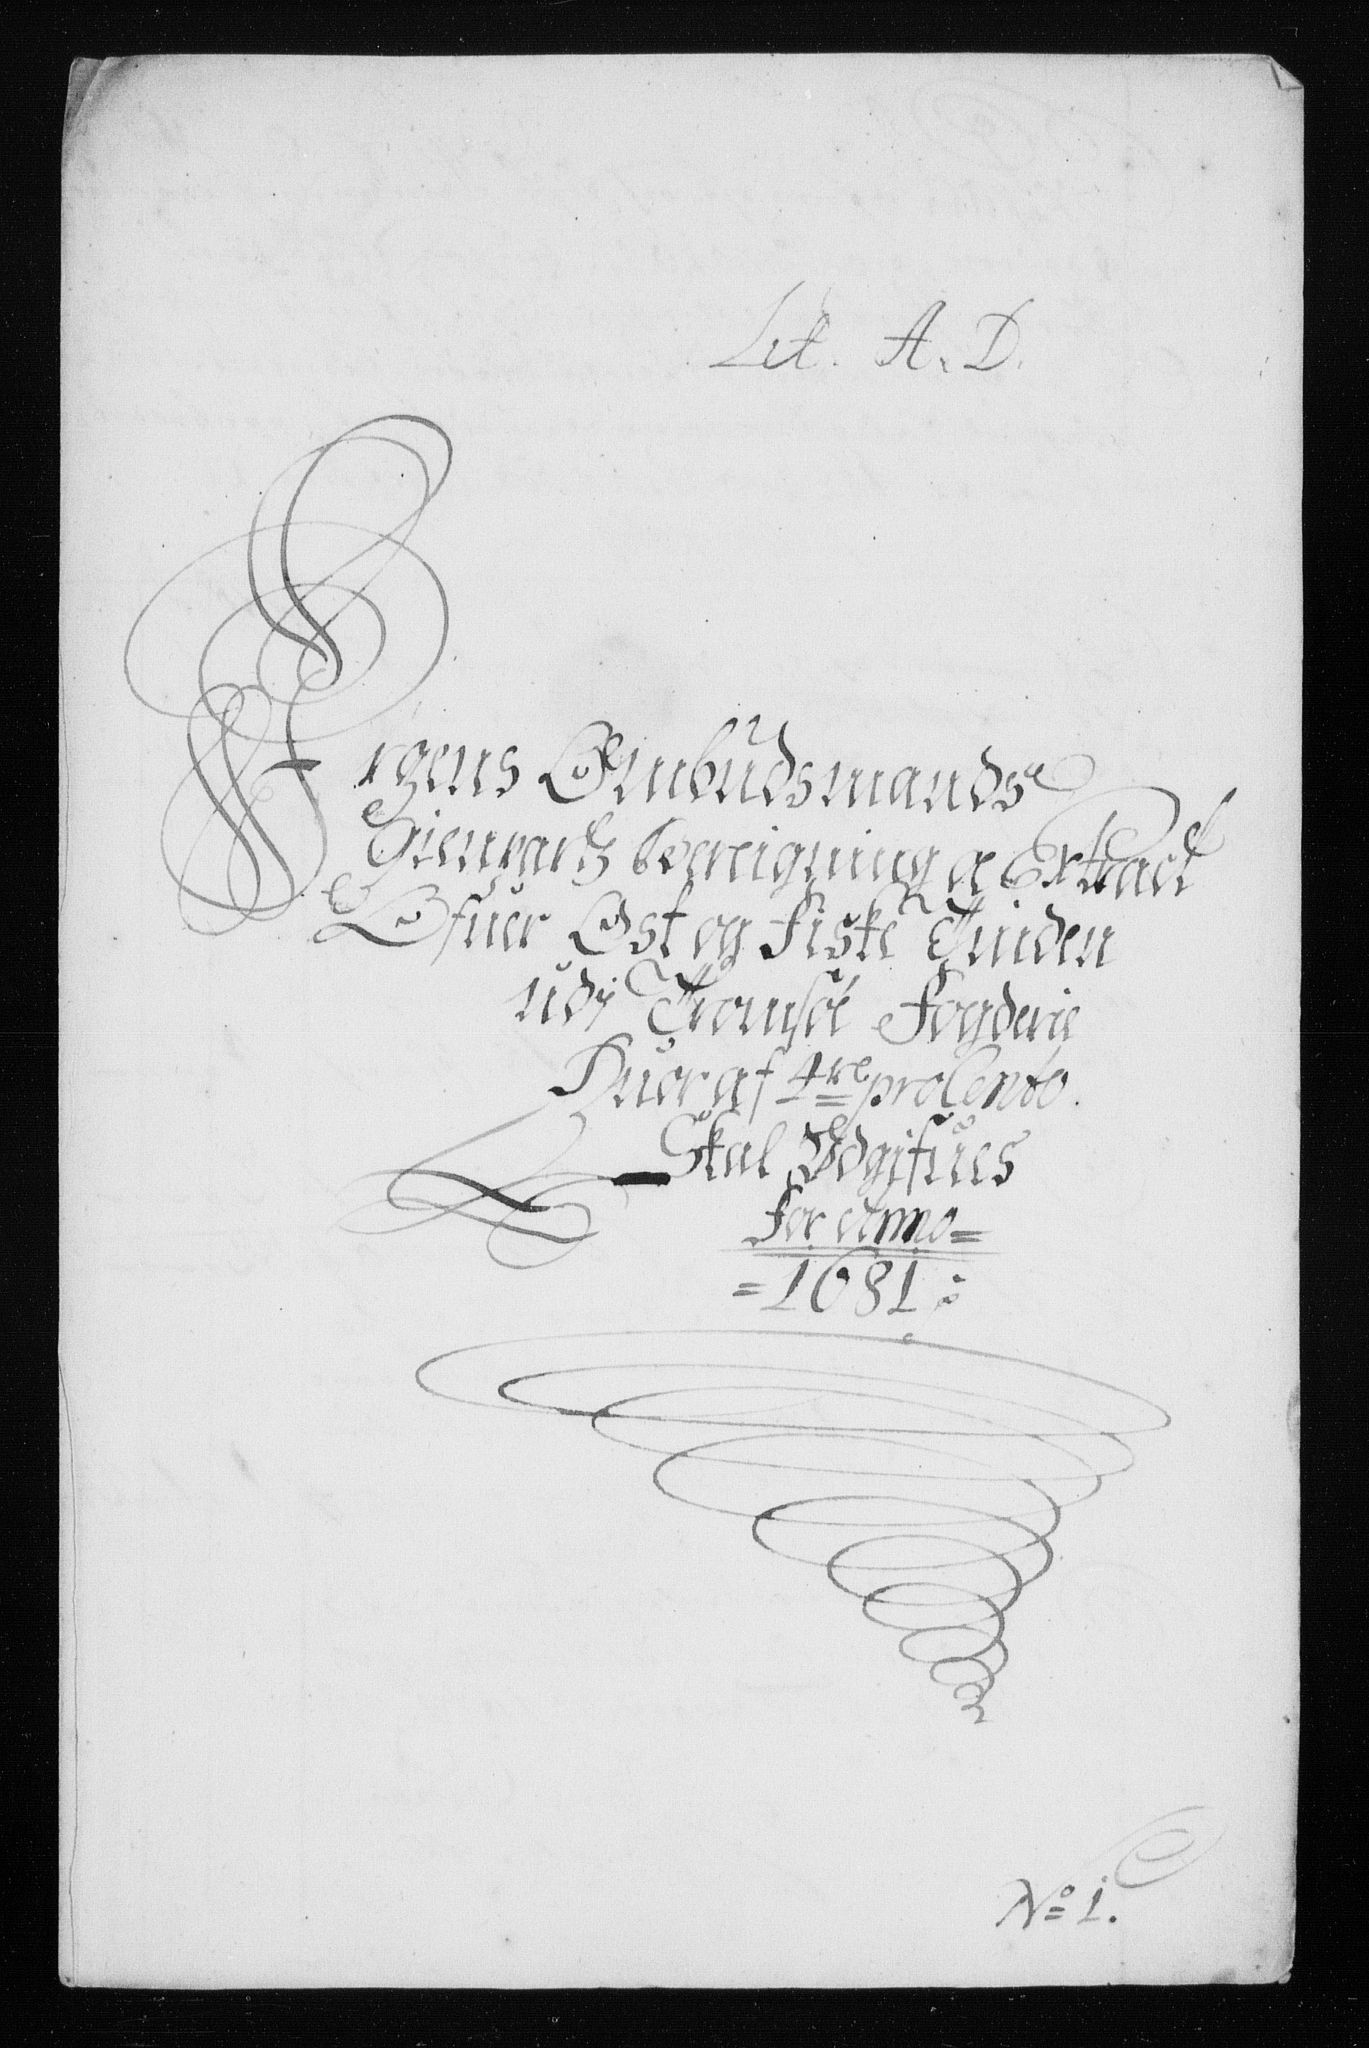 Lit. A. D.
Kirgens Ombudsmands
Giennpartz bereigning og Extract
Ofuer Ost og fiske Tinden
udj Tromsøe fogderie
Huor af 4re pro Cento.
Skal Vdgifues
for Anno=
=1681:
No= 1.